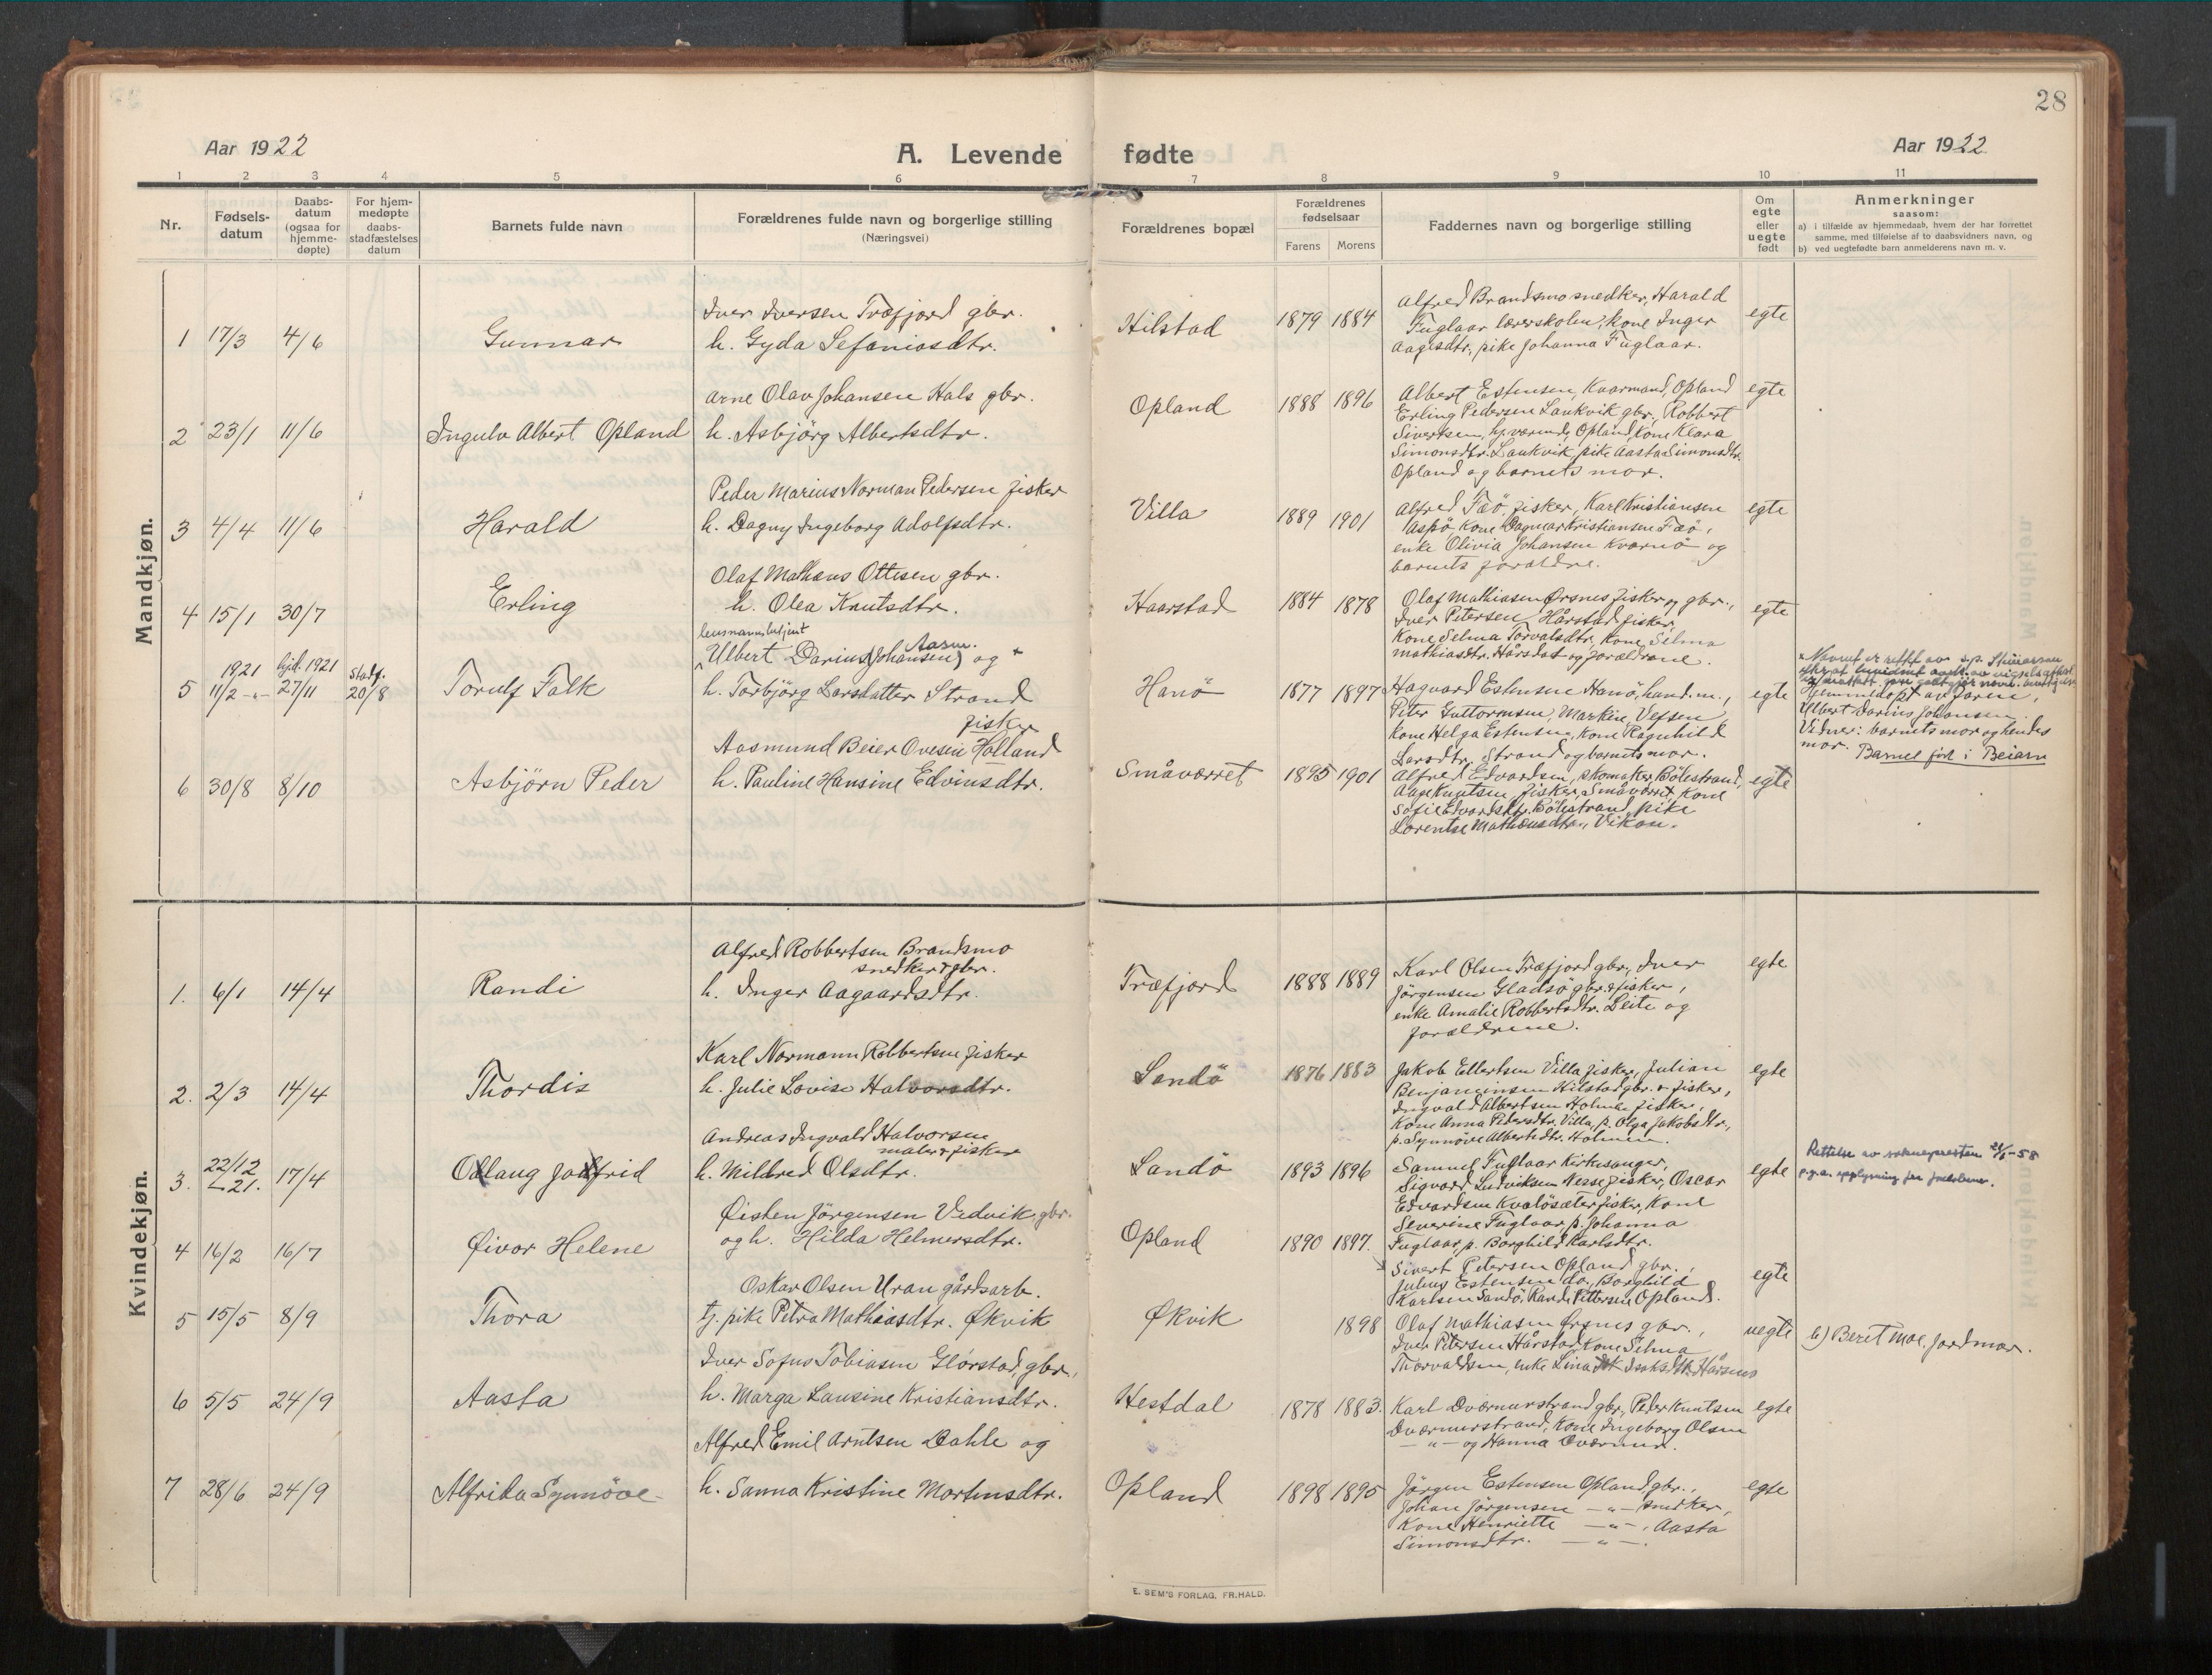 28
Aar 1922
A. Levende fødte
Aar 1922
1 2 3 4 5 6 7 8 9 10 11
Nr.
Fødsels-
datum
Daabs-
datum
(ogsaa for
hjemme-
døpte)
For hjem-
medøpte
daabs-
stadfæstelses
datum
Barnets fulde navn
Forældrenes fulde navn og borgerlige stilling
(Næringsvei)
Forældrenes bopæl
Forældrenes
fødselsaar
Farens Morens
Faddernes navn og borgerlige stilling
Om
egte
eller
uegte
født
Anmerkninger
saasom:
a) i tilfælde av hjemmedaab, hvem der har forrettet
samme, med tilføielse af to daabsvidners navn, og
b) ved uegtefødte barn anmelderens navn m. v.
Mandkjøn.
1 17/3 4/6 Gunnar
Iver Iversen Træfjord gbr.
h. Gyda Sefaniasdtr.
Hilstad 1879 1884
Alfred Brandsmo snedker, Harald
Fuglaar lærerskolen, kone Inger
Aagesdtr, pike Johanna Fuglaar.
egte
2 23/1 11/6 Ingulv Albert Opland
Arne Olav Johansen Hals gbr.
h. Asbjörg Albertsdtr.
Opland 1888 1896
Albert Estensen, Kaarmand, Opland
Erling Pedersen Laukvik gbr., Robbert
Sivertsen, hj.værende, Opland, Kone Klara
Simonsdtr. Laukvik, pike Aasta Simonsdtr.
Opland og barnets mor.
egte
3 4/4 11/6 Harald
Peder Marius Norman Pedersen fisker
h. Dagny Ingeborg Adolfsdtr.
Villa 1889 1901
Alfred Fæö, fisker, Karl Kristiansen
Aspö, Kone Dagmar Kristiansen Fæö,
enke Olivia Johansen Kvarnö og
barnets forældre.
egte
4 15/1 30/7 Erling
Olaf Mathæus Ottesen gbr.
h. Olea Knutsdtr.
Haarstad 1884 1878
Olaf Mathiasen Ørsnes fisker og gbr.,
Iver Petersen Hårstad fisker,
Kone Selma Torvalsdtr, Kone Selma
Mathiasdtr. Hårstad og forældrene.
egte
5 1921 11/2 -"- hjd. 1921 27/11 Stadf. 20/8 Torulf Falk
lensmannsbetjent
Ulbert Darius (Johansen) Aasm. og
h. Torbjörg Larsdatter Strand
Hanö 1877 1897
Hagvard Estensen Hanö, hand.m.,
Peter Guttormsen, Marken, Vefsen,
Kone Helga Estensen, Kone Ragnhild
Larsdtr, Strand og barnets mor.
egte
Hjemmedöpt av faren,
Ulbert Darius Johansen
Vidner: barnets mor og hendes
mor. Barnet föd i Beiarn
6 30/8 8/10 Asbjörn Peder
fisker
Aasmund Beier Ovesen Holland
h. Pauline Hansine Edvinsdtr.
Småværret 1895 1901
Alfred Edvardsen, skomaker, Bölestrand,
Aage Knutsen, fisker, Småværret, Kone
Sofie Edvardsdtr. Bölestrand, pike
Lorentse Mathæusdtr., Vikan.
egte
Kvindekjøn.
1. 6/1 14/4 Randi
Alfred Robbertsen Brandsmo
snedker & gbr.
h. Inger Aagaardsdtr.
Træfjord 1888 1889
Karl Olsen Træfjord gbr., Iver
Jörgensen Gladsö gbr. & fisker,
enke Amalie Robbertsdtr. Leite og
forældrene.
egte
2. 2/3 14/4 Thordis
Karl Normann Robbertsen fisker
h. Julie Lovise Halvorsdtr.
Sandö 1876 1883
Jakob Ellertsen Villa fisker, Julian
Benjaminsen Hilstad gbr. & fisker,
Ingvald Albertsen Holmen fisker,
Kone Anna Pedersdtr. Villa, p. Olga Jakobsdtr.,
p. Synnöve Albertsdtr. Holmen.
egte
3. 22/12 21. 17/4 Ollaug Jodfrid
Andreas Ingvald Halvorsen
maler & fisker
h. Mildred Olsdtr.
Sandö 1893 1896
Samuel Fuglaar Kirkesanger,
Sigvard Ludviksen Nesse fisker, Oscar
Edvardsen Kvalösæter fisker, Kone
Severine Fuglaar, p. Johanna
Fuglaar, p. Borghild Karlsdtr.
egte
Rettelse av sokneprestens 21/1-58
p.g.a. opplysning fra foreldrene.
4 16/2 16/7 Øivor Helene
Øisten Jörgensen Vedvik gbr.
og h. Hilda Helmersdtr.
Opland 1890 1897.
Sivert Petersen Opland gbr.,
Julius Estensen do., Borghild
Karlsen Sandö, Randi Pettersen Opland.
egte
5 15/5 8/9 Thora
Oskar Olsen Uran gårdsarb.
tj. pike Petra Mathiasdtr. Økvik
Økvik 1898
Olaf Mathiasen Ørsnes gbr.,
Iver Petersen Hårstad, Kone Selma
Thorvaldsen, enke Lina Isaksdtr. Hårsnes
uegte
b) Beret Moe, jordmor.
6 5/5 24/9 Aasta
Iver Sofus Tobiasen Glörstad, gbr.,
h. Marga Lausine Kristiansdtr.
Hestdal 1878 1883.
Karl Dværnerstrand gbr, Peder Knutsen
Dværnerstrand, Kone Ingeborg Olsen
-"- og Hanna
egte
7 28/6 24/9 Alfrida Synnöve
Alfred Emil Arntsen Dahle og
h. Sanna Kristine Martinsdtr.
Opland 1898 1895
Jörgen Estensen Opland gbr.,
Johan Jörgensen -"- snedker,
Kone Henriette -"-, Aasta
Simonsdtr. -"-.
egte
E. SEM'S FORLAG, FR.HALD.